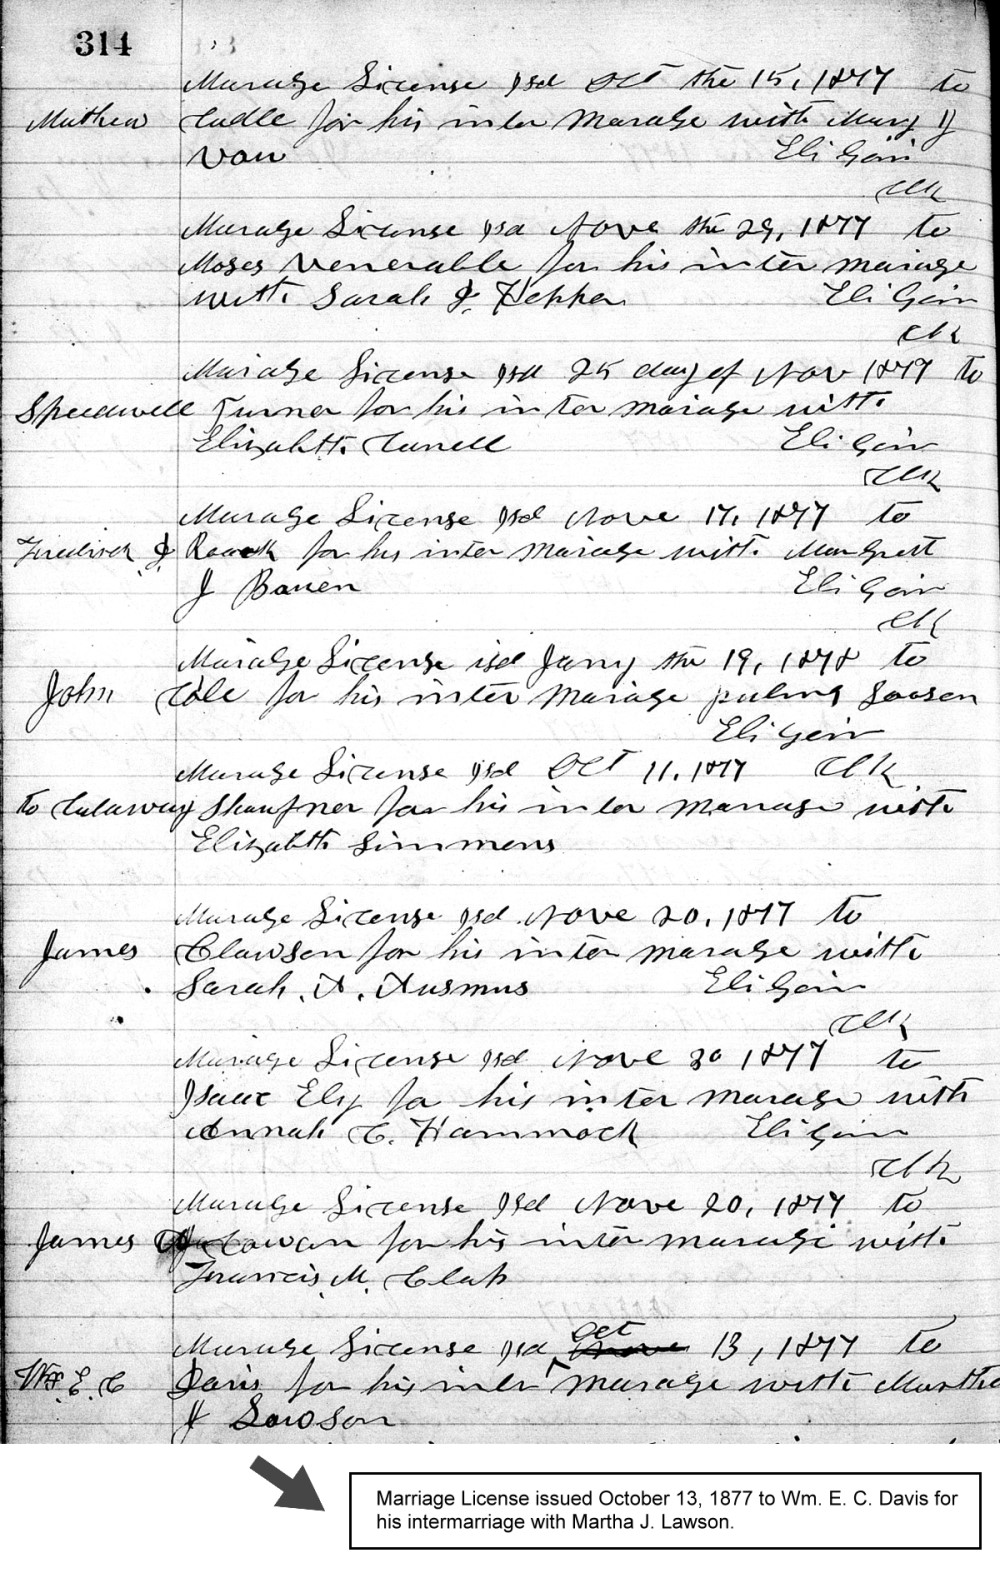 314
Marage License Isd Oct the 15, 1877 to
Mathew Cadle for his inter Marage with Mary J
Van Eli Goin
Clk
Marage License Isd Nove the 29, 1877 to
Moses Venerable for his inter Mariage
with Sarah J. Hepher Eli Goin
Clk
Mariage License Isd 25 day of Nov 1879 to
Speedwell Turner for his inter Mariage with
Elizabeth Eli Goin
Clk
Marage License Isd Nove 17, 1877 to
Fredrick J for his inter Mariage with Margrett
J Eli Goin
Clk
Mariage License isd Jany the 19, 1878 to
John Cole for his inter Mariage Lawsen
Eli Goin
Marage License Isd Oct 11, 1877 Clk
to Calaway Shaufner for his inter Marrage with
Elizabeth Simmens
Marage License Isd Nove 20, 1877 to
James Clawson for his inter marage with
Sarah. A. Ausmus Eli Goin
Clk
Mariage License Isd Nove 30 1877 to
Isaac Ely for his inter marage with
Annah C. Hammock Eli Goin
Clk
Marage License Isd Nove 20, 1877 to
James Cowan for his inter marage with
Francis. M. Clap
Marage License Isd Oct 13, 1877 to
Wm. E. C Davis for his inter Marage with Martha
J Lawson
Marriage License issued October 13, 1877 to Wm. E. C. Davis for
his intermarriage with Martha J. Lawson.